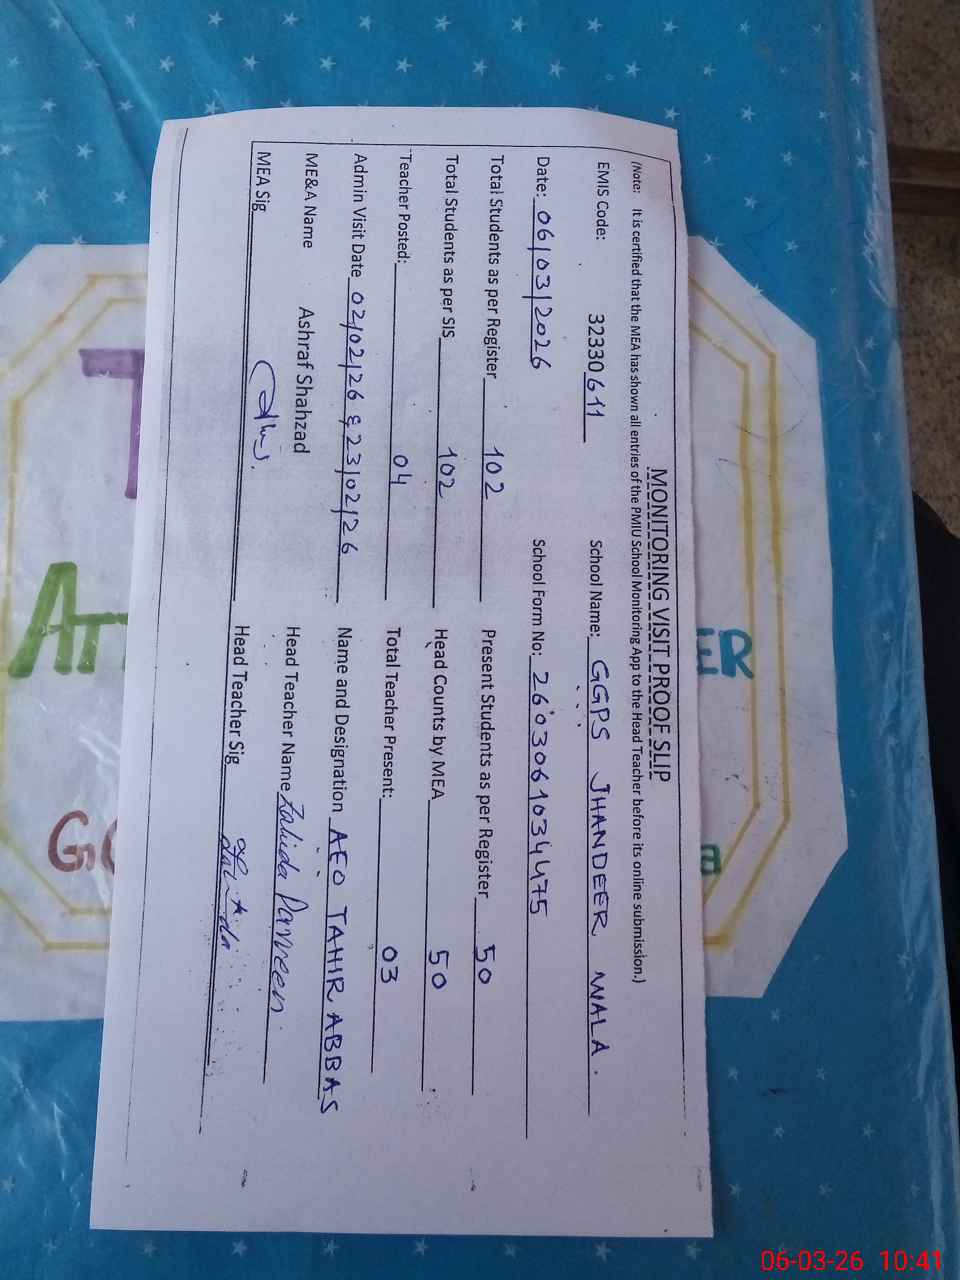 MONITORING VISIT PROOF SLIP
(Note: It is certified that the MEA has shown all entries of the PMIU School Monitoring App to the Head Teacher before its online submission.)
EMIS Code: 32330611 School Name: GGPS JHANDEER WALA.
Date: 06/03/2026 School Form No: 26030610344475
Total Students as per Register 102 Present Students as per Register 50
Total Students as per SIS 102 Head Counts by MEA 50
Teacher Posted: 04 Total Teacher Present: 03
Admin Visit Date 02/02/26 & 23/02/26 Name and Designation AEO TAHIR ABBAS
ME&A Name Ashraf Shahzad Head Teacher Name Zahida Parveen
MEA Sig Head Teacher Sig
ER
06-03-26 10:41